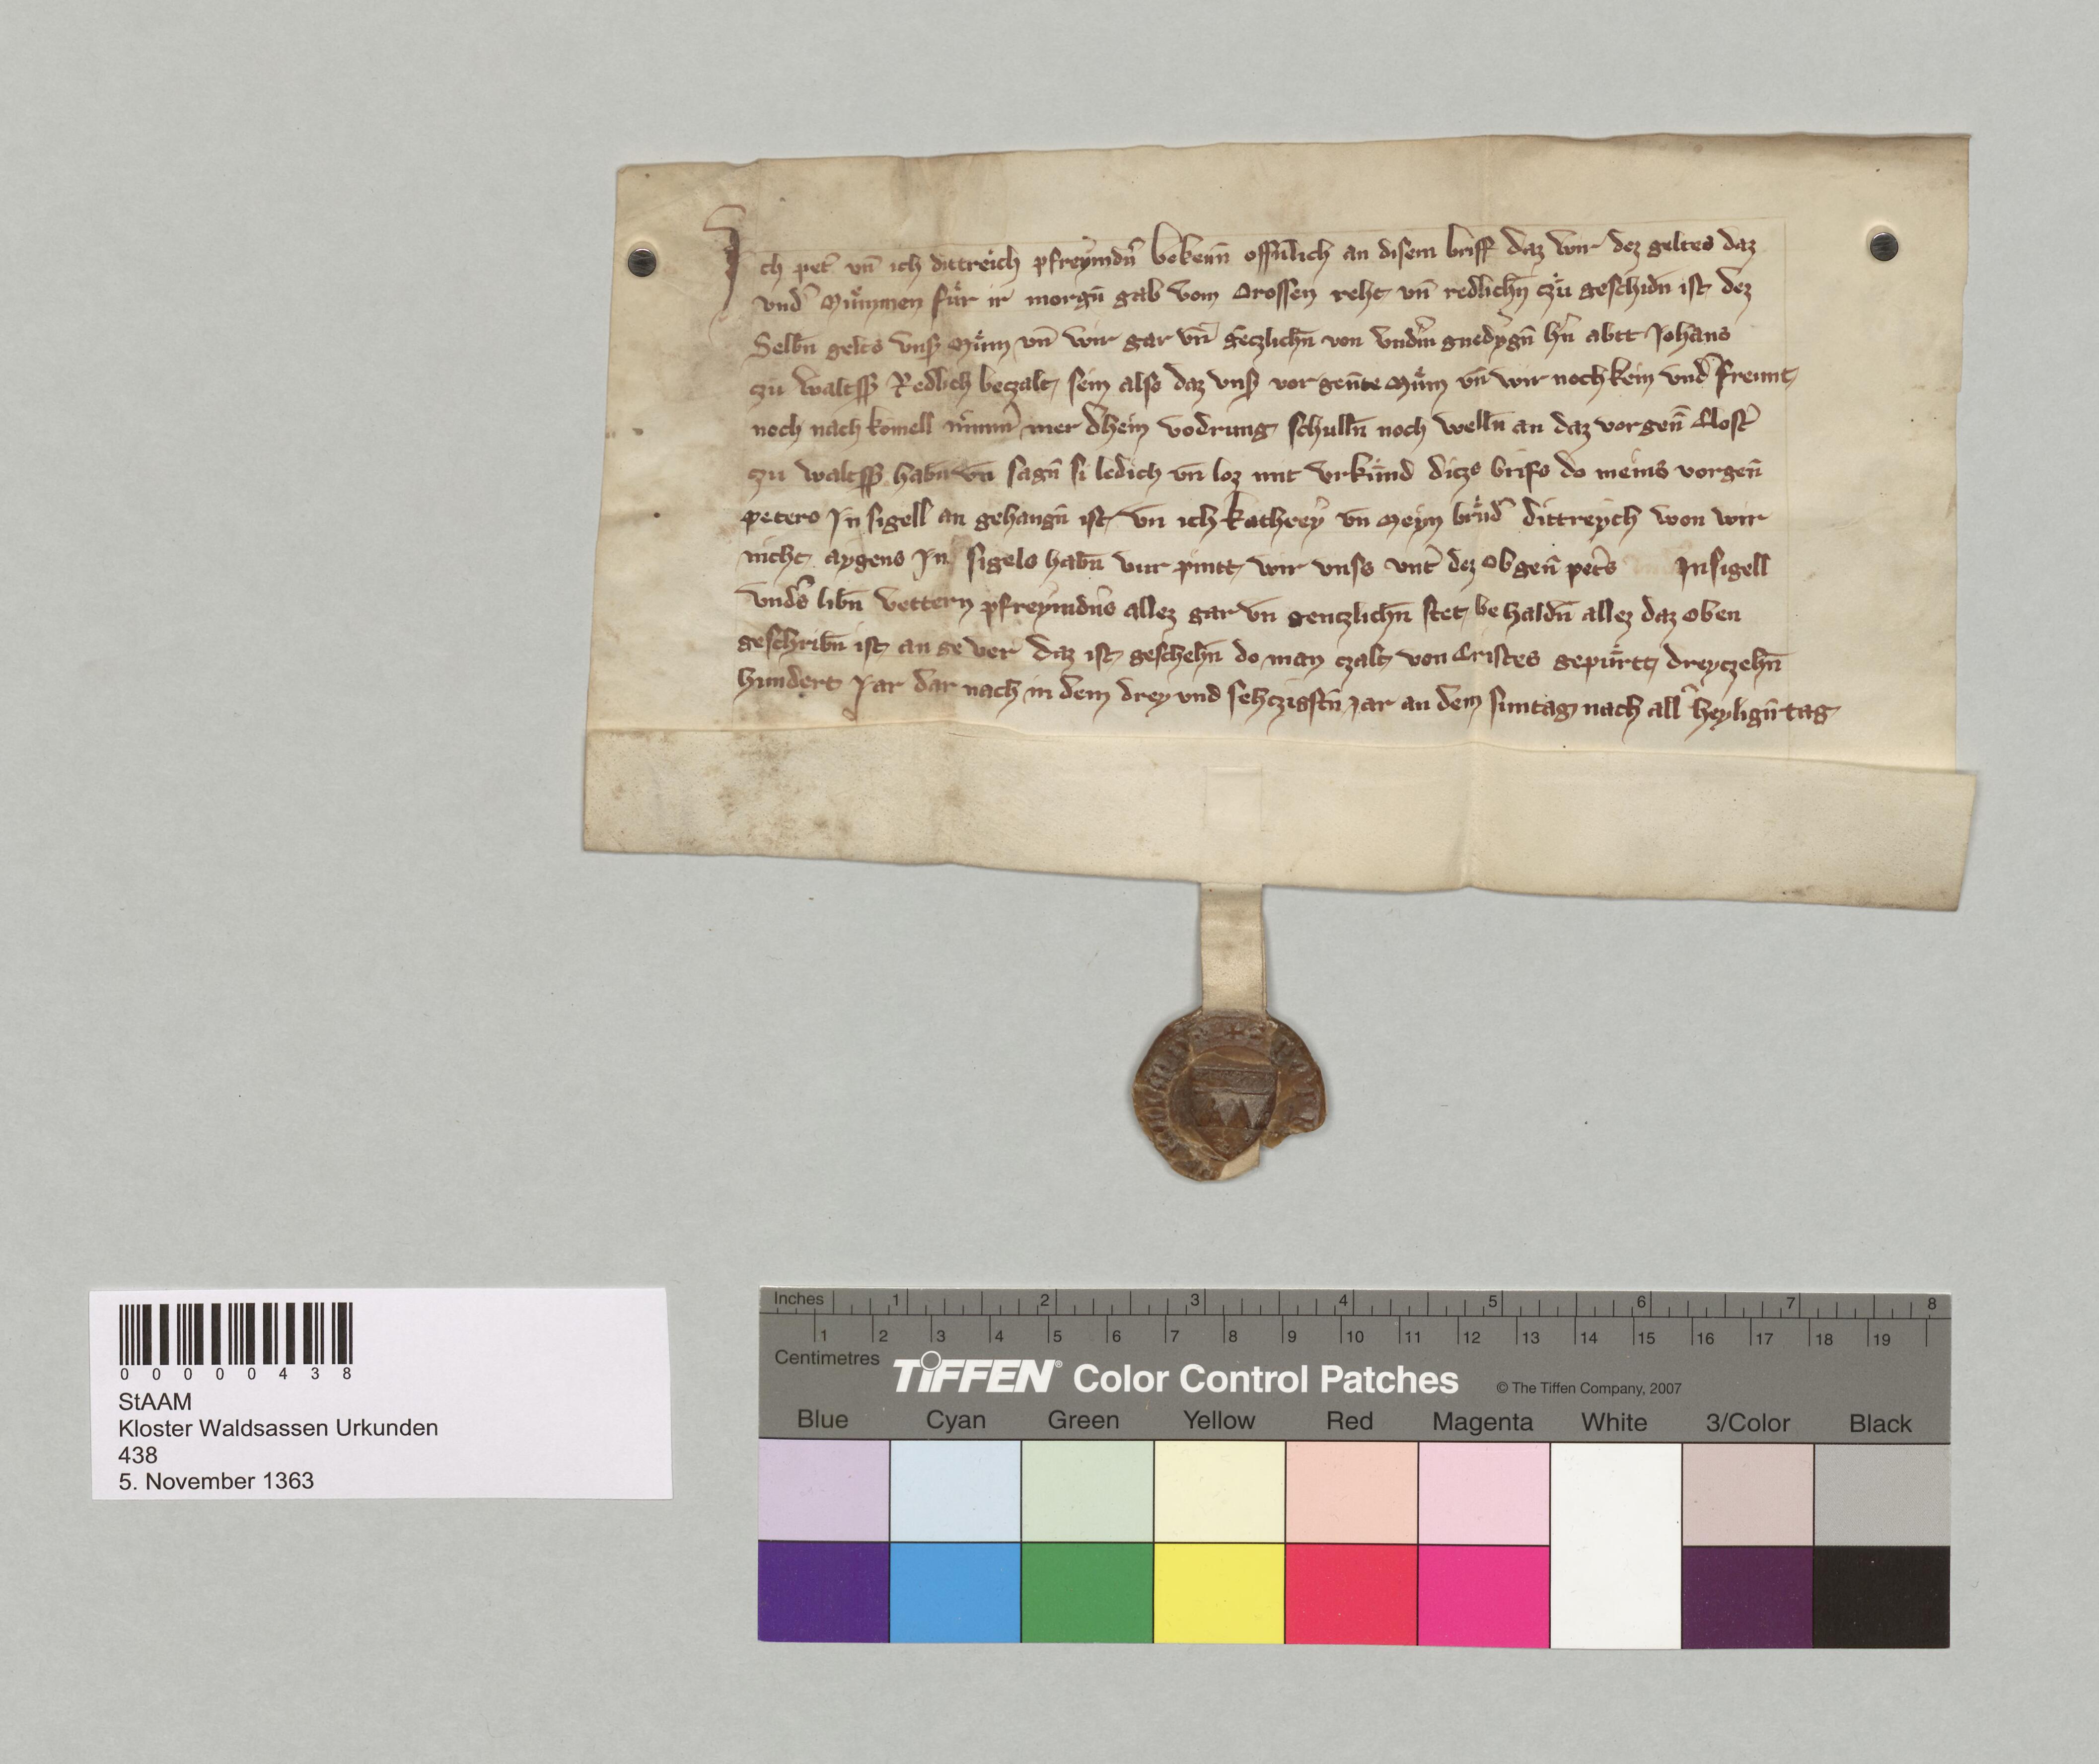 Ich pet̄ vn̄ ich dittreich pfreymdn̄ bekenn̄ offn̄lich an disem briff daz wir dez geltes daz
vnd̄ Mummen für ir morgn̄ gab vom Crossen reht vn̄ redlichn̄ czu geschidn̄ ist dez
Selbn̄ gelts vnß Mům vn̄ wir gar vn̄ geczlichn̄ von vndm̄ gnedygn̄ hn̄ abtt Johans
zu waltss Redlich beczalt sein also daz vnß vor genn̄te Mům vn̄ wir noch kein vnd̄ freunt
noch nach komell nimm̄ mer dhein vodrung schulln̄ noch welln̄ an daz vorgen̄ Clost̄
zu waltss habn̄ vn̄ sagn̄ si ledich vn̄ loz mit vrkund diczs brifs do meins vorgen̄
peters In sigell an gehangn̄ ist vn̄ ich kathrey vn̄ Meyn brůd̄ dittreych won wir
nicht aygens In sigels habn̄ vur pintt wir vnss vnt̄ dez obgen̄ pet̄s Insigell
vnds̄ libn̄ vettern pfreymdn̄s allez gar vn̄ genczlichn̄ stet be haldn̄ allez daz oben
geschribn̄ ist an ge ver daz ist geschehn̄ do man czalt von Cristes gepürtt dreyczehn̄
hundert Jar dar nach in dem drey vnd sehczigstn̄ jar an dem suntag nach all̄ heylign̄ tag
00000438
StAAM
Kloster Waldsassen Urkunden
438
5. November 1363
Inches 1 2 3 4 5 6 7 8
1 2 3 4 5 6 7 8 9 10 11 12 13 14 15 16 17 18 19
Centimetres
TIFFEN® Color Control Patches © The Tiffen Company, 2007
Blue Cyan Green Yellow Red Magenta White 3/Color Black